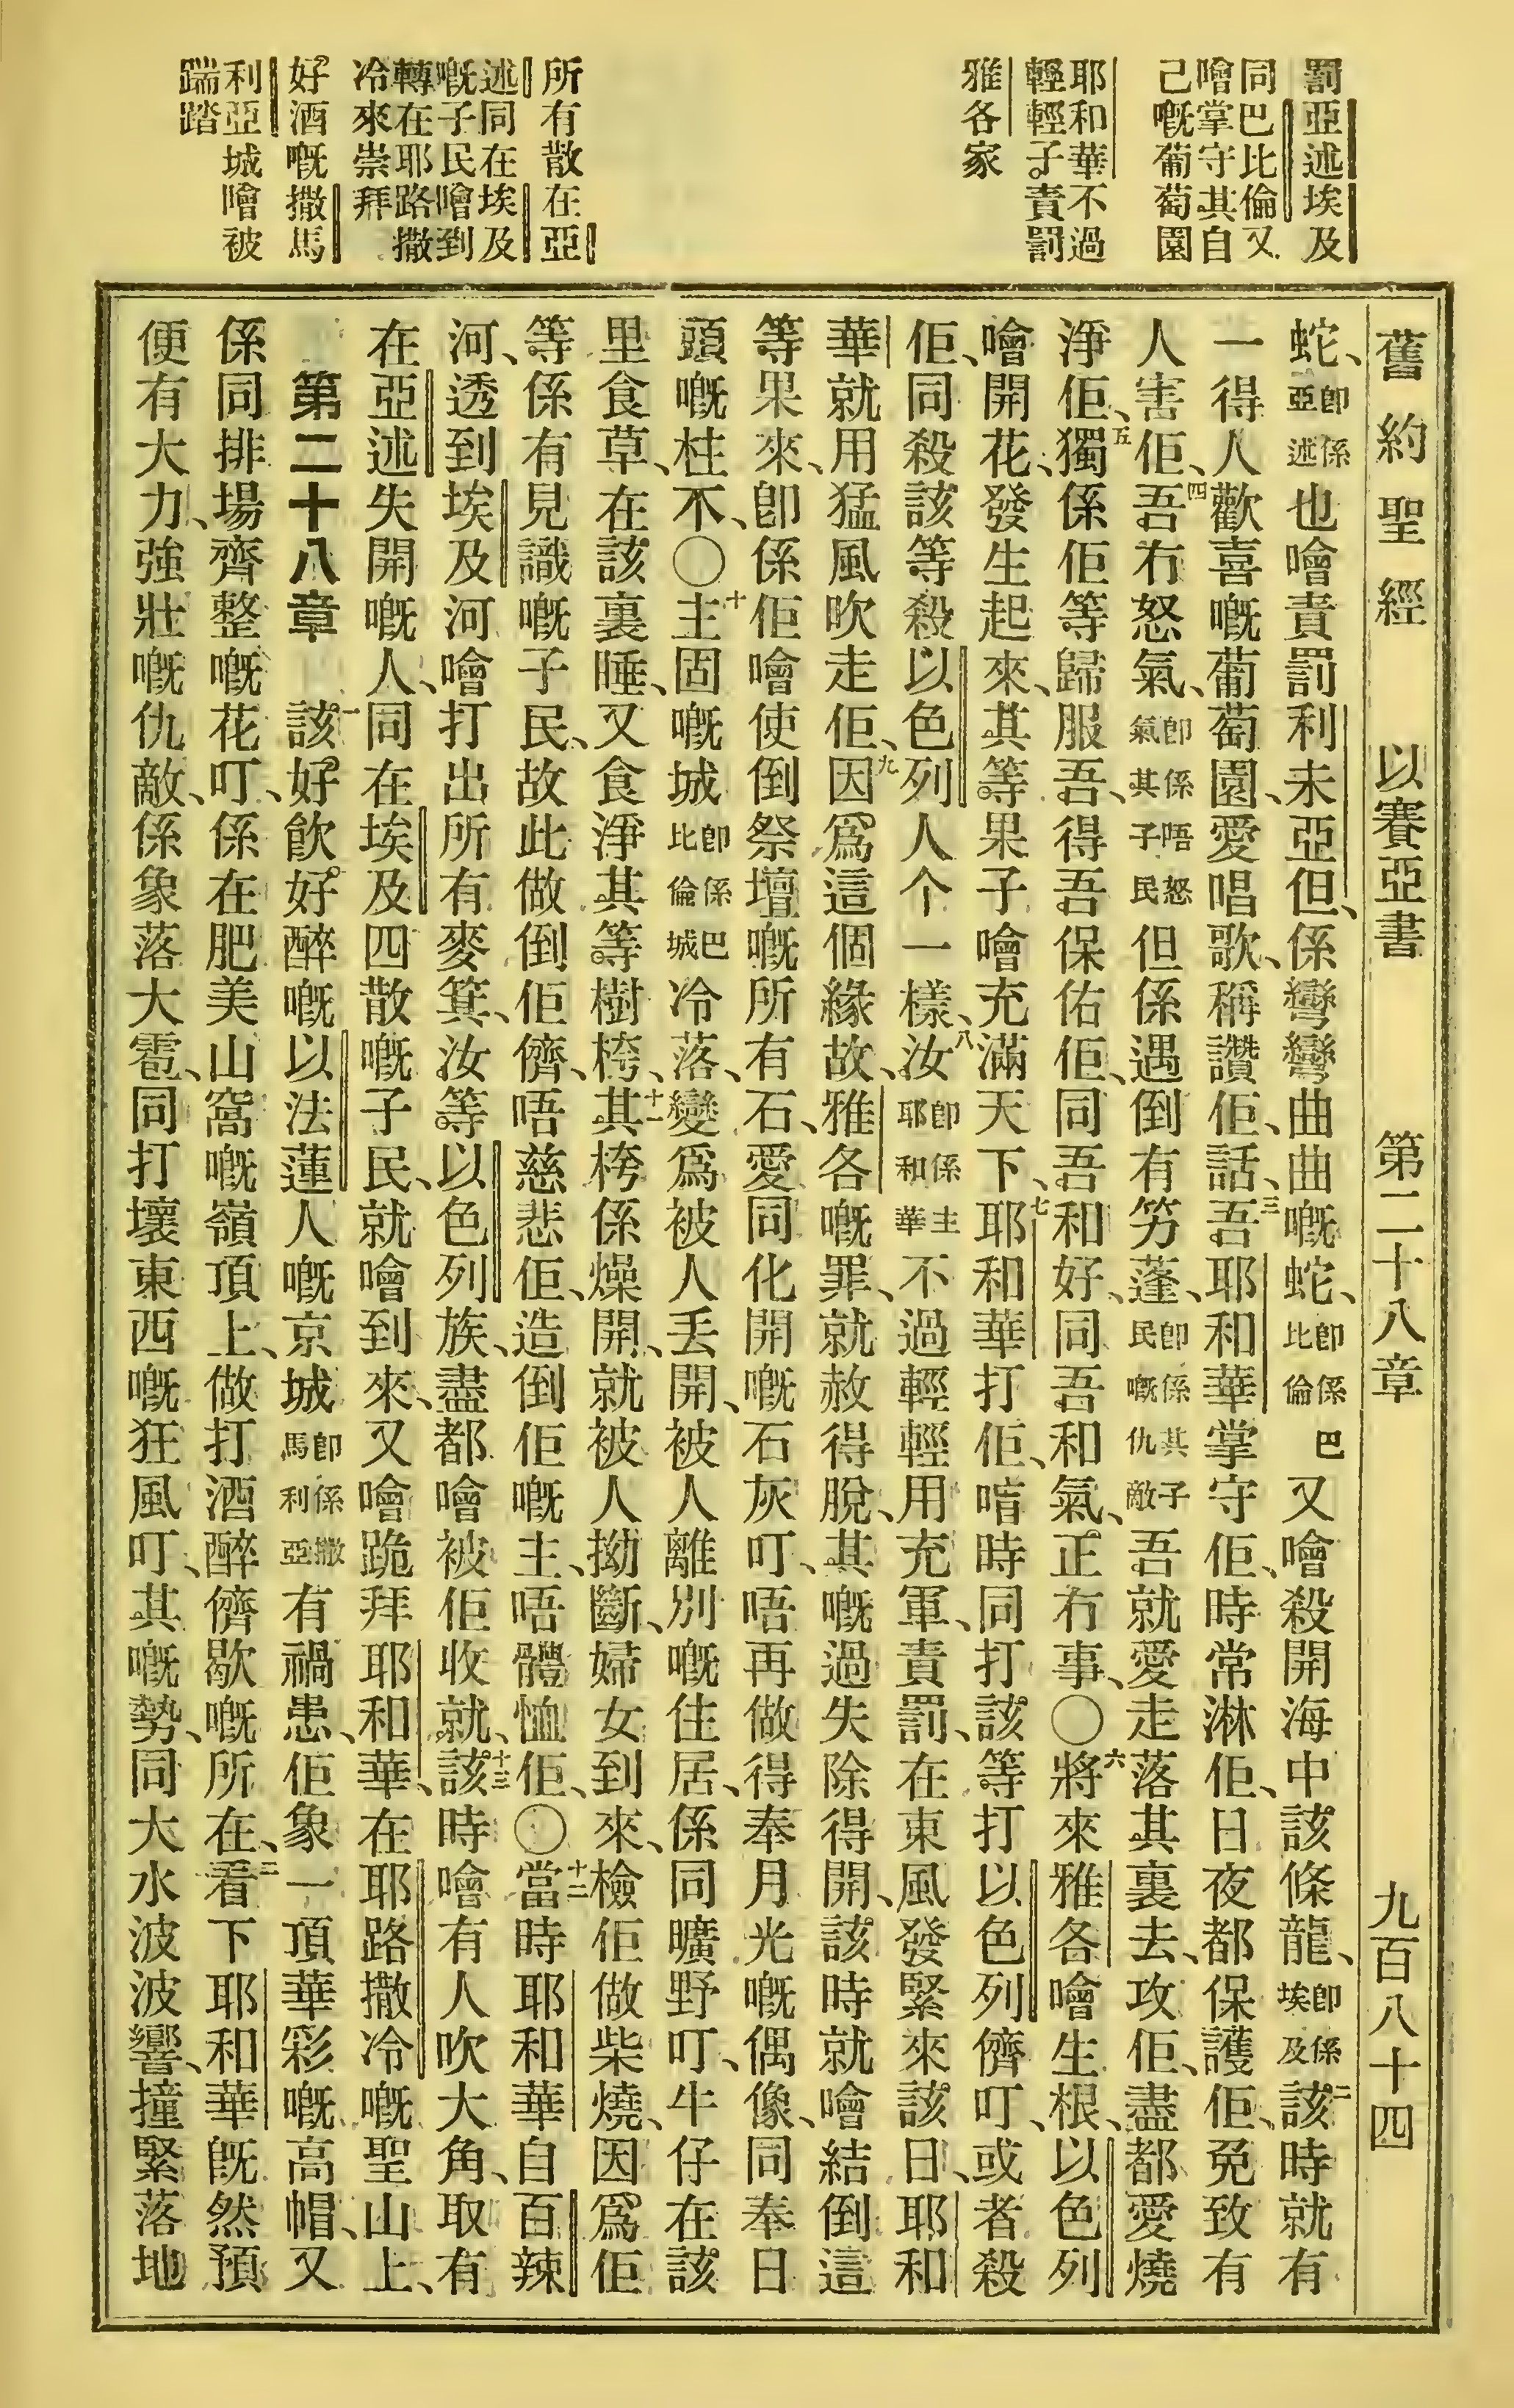 罰亞述埃及
同巴比倫又
噲掌守其自
己嘅葡萄園
耶和華不過
輕輕子責罰
雅各家
所有散在亞
述同在埃及
嘅子民噲到
轉在耶路撒
冷來崇拜
好酒嘅撒馬
利亞城噲被
踹踏
舊約聖經 以賽亞書 第二十八章 九百八十四
蛇、卽係亞述也噲責罰利未亞但、係彎彎曲曲嘅蛇、卽係巴比倫又噲殺開海中該條龍、卽係埃及二該時就有
一得人歡喜嘅葡萄園、愛唱歌、稱讚佢、話、三吾耶和華掌守佢、時常淋佢、日夜都保護佢、免致有
人害佢、四吾冇怒氣、卽係唔怒氣其子民但係遇倒有竻蓬、卽係其子民嘅仇敵吾就愛走落其裏去、攻佢、盡都愛燒
淨佢、五獨係佢等歸服吾、得吾保佑佢、同吾和好、同吾和氣、正冇事、〇六將來雅各噲生根、以色列
噲開花、發生起來、其等果子噲充滿天下、七耶和華打佢、喑時同打該等打以色列儕叮、或者殺
佢、同殺該等殺以色列人个一樣、八汝卽係主耶和華不過輕輕用充軍、責罰、在東風發緊來該日、耶和
華就用猛風吹走佢、九因爲這個緣故、雅各嘅罪、就赦得脫、其嘅過失除得開、該時就噲結倒這
等果來、卽係佢噲使倒祭壇嘅所有石、愛同化開嘅石灰叮、唔再做得奉月光嘅偶像、同奉日
頭嘅柱不、〇十主固嘅城卽係巴比倫城冷落、變爲被人丢開、被人離別嘅住居、係同曠野叮、牛仔在該
里食草、在該裏睡、又食淨其等樹桍、十一其桍係燥開、就被人拗斷、婦女到來、檢佢做柴燒、因爲佢
等係有見識嘅子民、故此做倒佢儕、唔慈悲佢、造倒佢嘅主、唔體恤佢、〇十二當時耶和華自百辣
河、透到埃及河噲打出所有麥箕、汝等以色列族、盡都噲被佢收就、十三該時噲有人吹大角、取有
在亞述失開嘅人、同在埃及四散嘅子民、就噲到來、又噲跪拜耶和華、在耶路撒冷嘅聖山上、
第二十八章 一該好飮好醉嘅以法蓮人嘅京城卽係撒馬利亞有禍患、佢象一頂華彩嘅高帽、又
係同排場齊整嘅花叮、係在肥美山窩嘅嶺頂上、做打酒醉儕歇嘅所在、二看下耶和華旣然預
便有大力、強壯嘅仇敵、係象落大雹、同打壞東西嘅狂風叮、其嘅勢、同大水波波響、撞緊落地